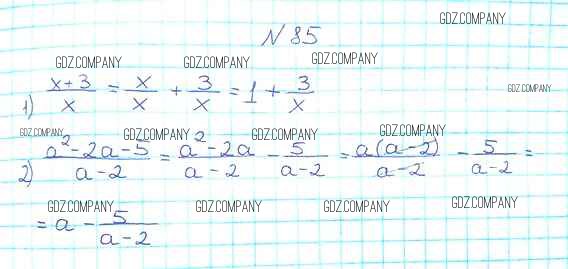 N 85
GDZ.COMPANY
GDZ.COMPANY GDZ.COMPANY GDZ.COMPANY
1) (x+3)/x = x/x + 3/x = 1 + 3/x
GDZ.COMPANY
GDZ.COMPANY GDZ.COMPANY GDZ.COMPANY GDZ.COMPANY
2) (a²-2a-5)/(a-2) = (a²-2a)/(a-2) - 5/(a-2) = a(a-2)/(a-2) - 5/(a-2) =
GDZ.COMPANY GDZ.COMPANY GDZ.COMPANY GDZ.COMPANY
= a - 5/(a-2)